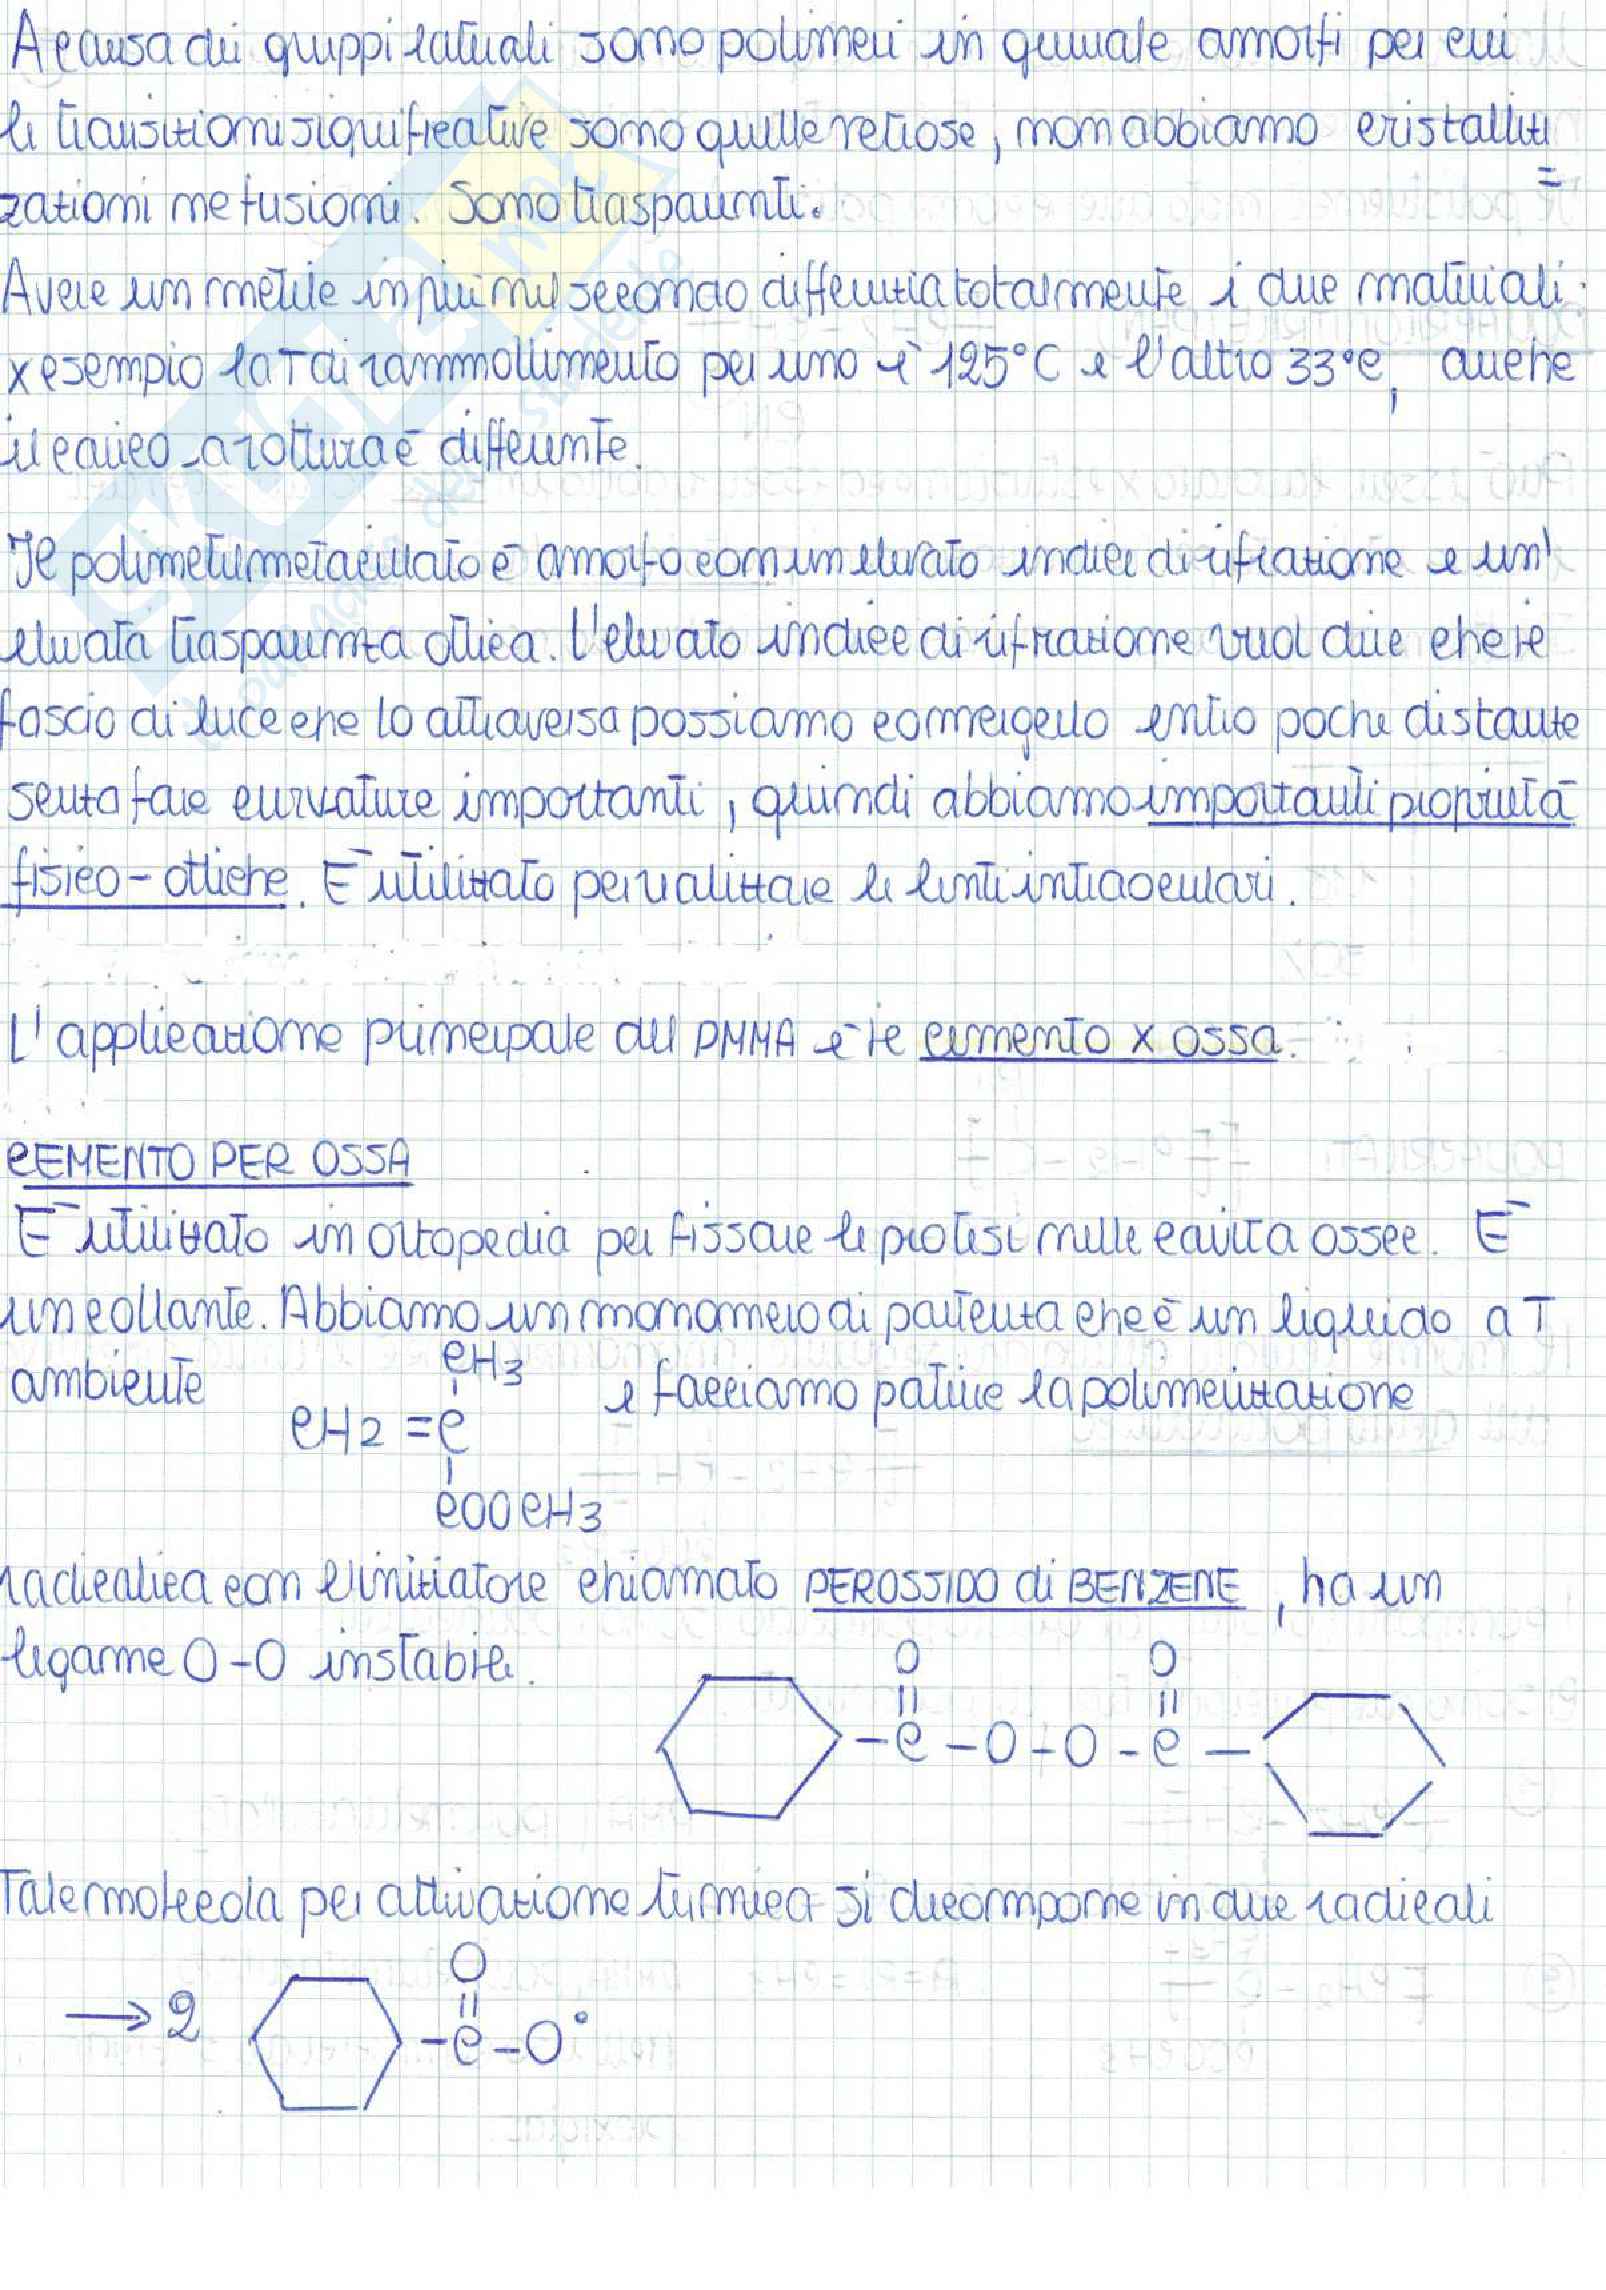 A causa dei gruppi laterali sono polimeri in generale amorfi per cui
le transizioni significative sono quelle vetrose, non abbiamo cristalliz
zazioni ne fusioni. Sono trasparenti.
Avere un metile in più nel secondo differenzia totalmente i due materiali:
x esempio la T di rammollimento per uno è 125°C e l'altro 33°C, anche
il carico a rottura è differente.
Il polimetilmetacrilato è amorfo con un elevato indice di rifrazione e un'
elevata trasparenza ottica. L'elevato indice di rifrazione vuol dire che il
fascio di luce che lo attraversa possiamo convergerlo entro poche distanze
senza fare curvature importanti, quindi abbiamo importanti proprietà
fisico-ottiche. È utilizzato per realizzare le lenti intraoculari.
L'applicazione principale del PMMA è il cemento x ossa.
CEMENTO PER OSSA
È utilizzato in ortopedia per fissare le protesi nelle cavità ossee. È
un collante. Abbiamo un monomero di partenza che è un liquido a T
ambiente CH3 e facciamo partire la polimerizzazione
CH2 = C
COOCH3
radicalica con l'iniziatore chiamato PEROSSIDO di BENZENE, ha un
legame O-O instabile.
O O
-C-O-O-C-
Tale molecola per attivazione termica si decompone in due radicali
O
→ 2 -C-O°
skuola.net
dello studente